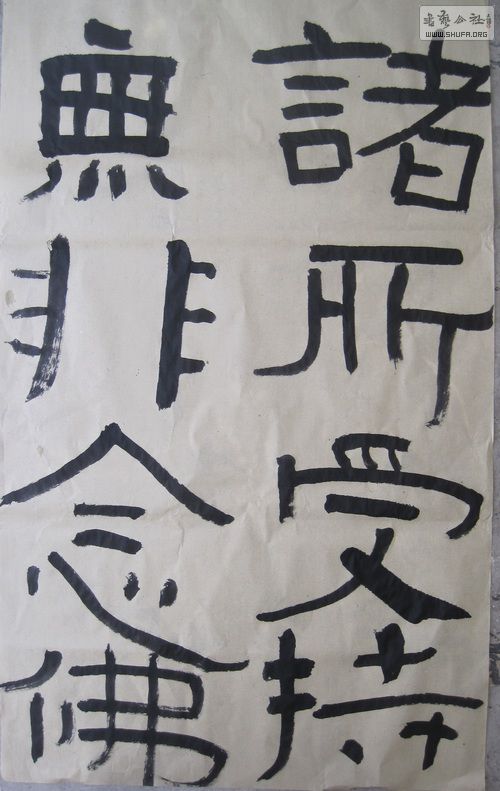 諸所受持
無非念佛
書藝公社
WWW.SHUFA.ORG